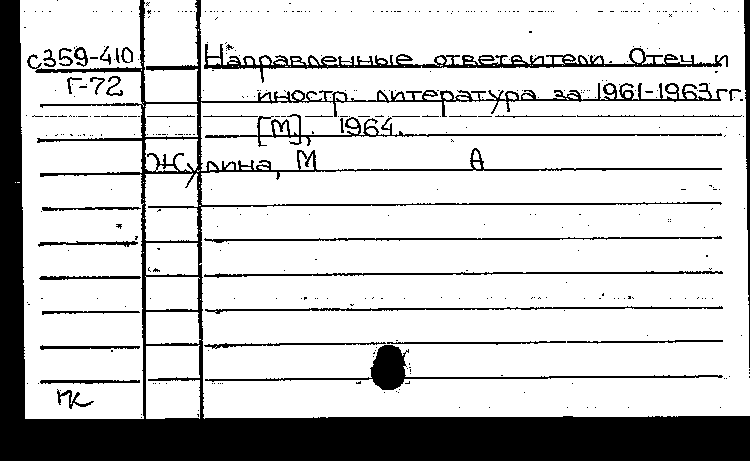 С359-410 Направленные ответвители. Отеч. и
Г-72 иностр. литература за 1961-1963гг.
[М], 1964.
Жулина, М А
ГК